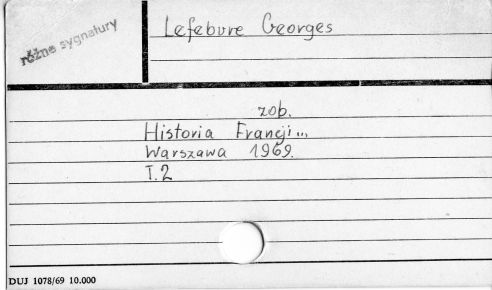 różne sygnatury
Lefebvre Georges
zob.
Historia Francji...
Warszawa 1969.
T.2
DUJ 1078/69 10.000